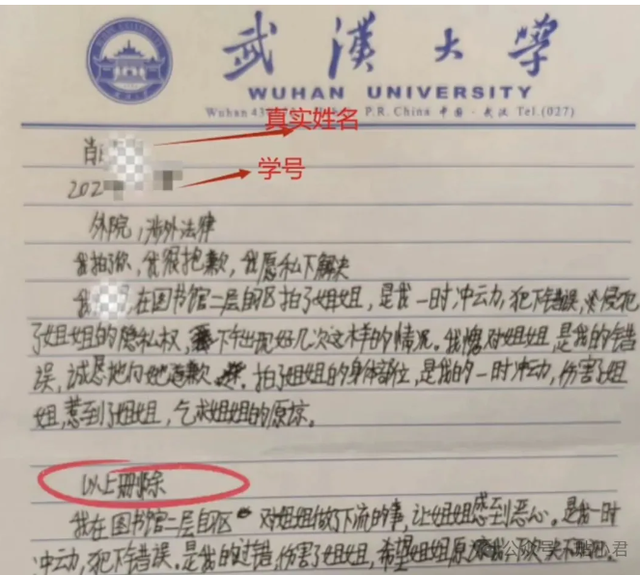 武漢大學
WUHAN UNIVERSITY
Wuhan 43 P.R. China 中国·武汉 Tel.(027)
真实姓名
肖
202
学号
外院，涉外法律
我拍了你，我很抱歉，我愿私下解决
我 ，在图书馆二层自区拍了姐姐，是我一时冲云力，犯下错误，侵犯
了姐姐的隐私权，下午出现好几次这样的情况。我愧对姐姐，是我的错
误，诚恳地向她道歉。拍了姐姐的身体部位，是我的一时冲动，伤害了姐
姐，惹到了姐姐，乞求姐姐的原谅。
以上删除
我在图书馆二层自区 对姐姐做了下流的事，让姐姐感到恶心。是我一时
冲动，犯下错误。是我的过错，伤害了姐姐，希望姐姐原谅我
公众号